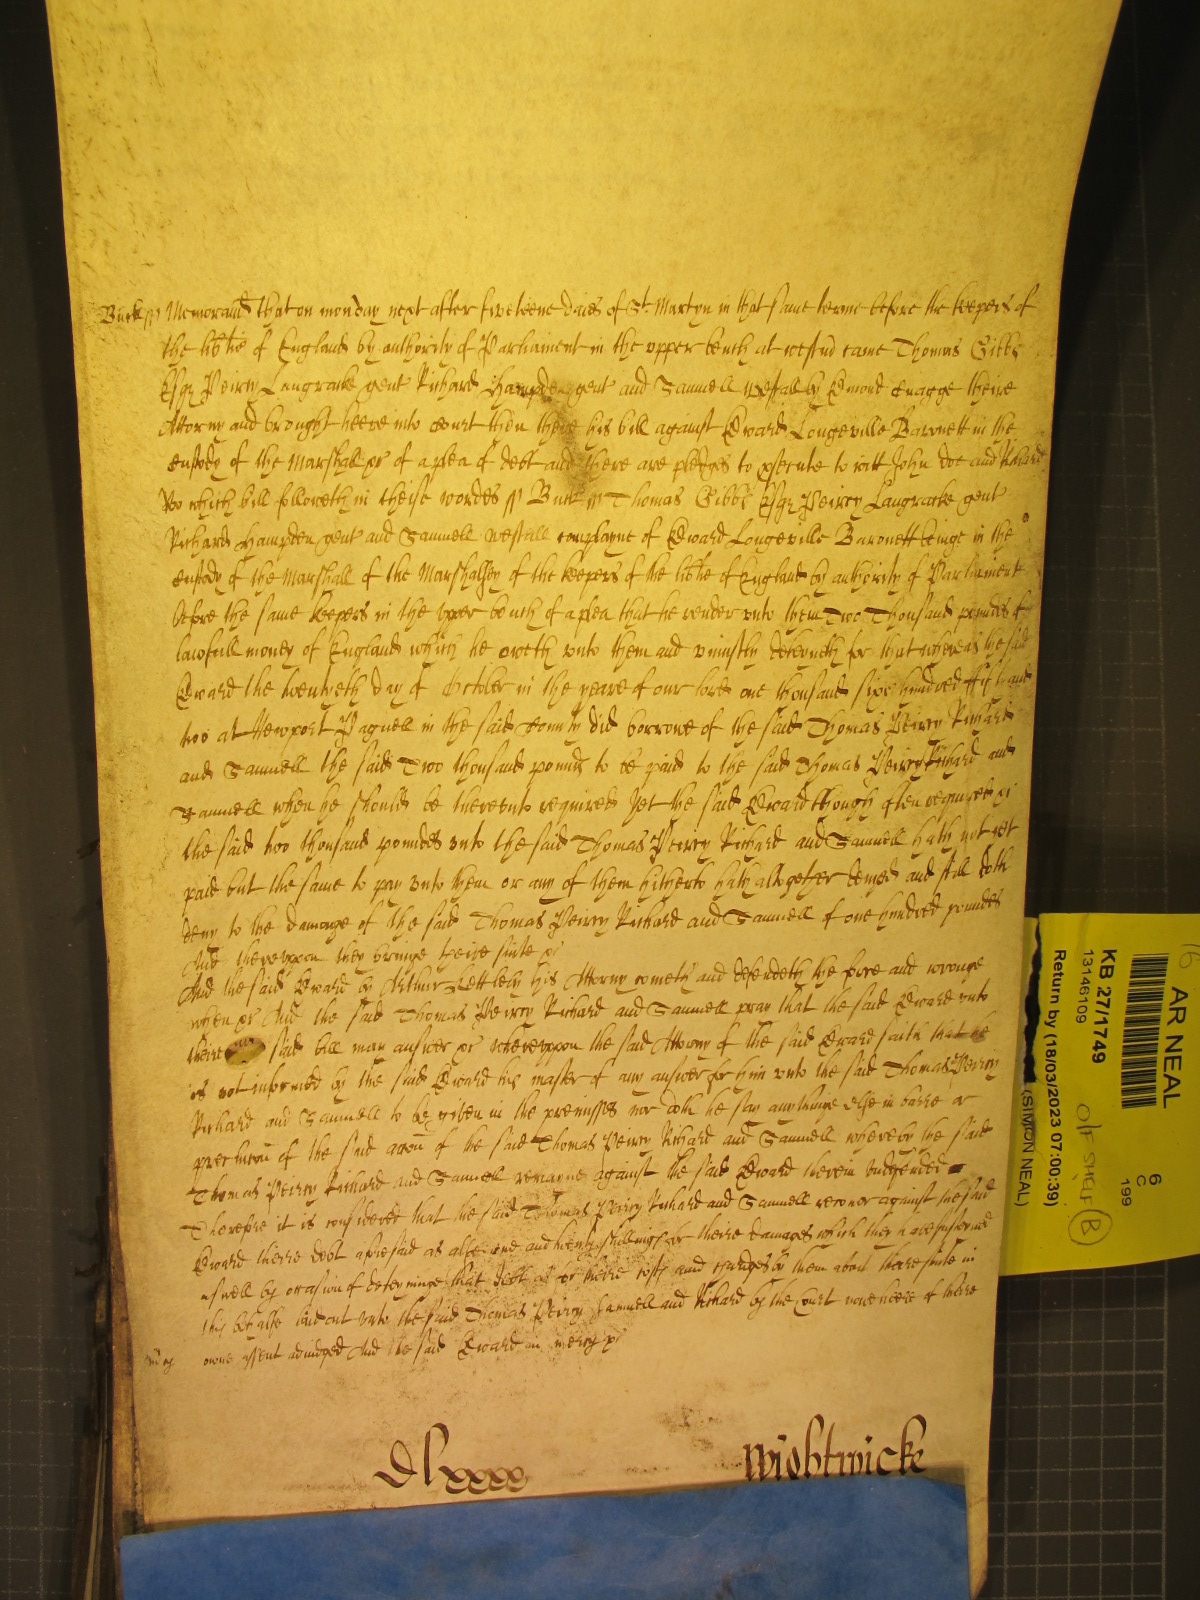 Buck ss Memorand that on monday next after fiveteene daies of St Martyn in that same terme before the keepers of
the lib'tie of England by authority of Parliament in the upper bench at westm'd came Thomas Gibbs
Esqr Peircy Langracke gent Richard Hampden gent and Samuell Westall by Edmond theire
Attorny and brought heere into court then there his bill against Edward Longeville Baronett in the
custody of the Marshall &c of a plea of debt and there are pledges to p'secute to witt John Doe and Richard
Roo which bill followeth in theise wordes ss Buck ss Thomas Gibbs Esqr Peircy Langracke gent
Richard Hampden gent and Samuell Westall complayne of Edward Longeville Baronett beinge in the
custody of the Marshall of the Marshalsey of the keepers of the lib'tie of England by authority of Parliament
before the same keepers in the upper bench of a plea that he render unto them Two Thousand poundes of
lawfull money of England which he oweth unto them and uniustly deteyneth for that whereas the said
Edward the twentyeth day of October in the yeare of our lord one thousand six hundred fifty and
two at Newport Pagnell in the said County did borrowe of the said Thomas Peircy Richard
and Samuell the said Two thousand pounds to be paid to the said Thomas Peircy Richard and
Samuell when he should be thereunto required Yet the said Edward though often required &c
the said two thousand poundes unto the said Thomas Peircy Richard and Samuell hath not yet
paid but the same to pay unto them or any of them hitherto hath altogether denyed and still doth
deny to the damage of the said Thomas Peircy Richard and Samuell of one hundred poundes
And thereuppon they bringe theire suite &c
And the said Edward by Arthur his Attorny cometh and defendeth the force and wronge
when &c And the said Thomas Peircy Richard and Samuell pray that the said Edward unto
theire said bill may answer &c whereuppon the said Attorny of the said Edward saith that he
is not informed by the said Edward his master of any answer for him unto the said Thomas Peircy
Richard and Samuell to be given in the premisses nor doth he say any thinge else in barre or
preclusion of the said accon of the said Thomas Peircy Richard and Samuell whereby the said
Thomas Peircy Richard and Samuell remayne against the said Edward therein undefended
Therefore it is considered that the said Thomas Peircy Richard and Samuell recover against the said
Edward theire debt aforesaid as alsoe one and twenty shillings for theire damages which they have susteyned
aswell by occasion of deteyninge that debt as for theire costs and charges by them about theire suite in
this behalfe laid out unto the said Thomas Peircy Samuell and Richard by the Court heere of theire
owne assent adiudged And the said Edward in mercy &c
Dlxxxx Wightwicke
AR NEAL
KB 27/1749
13146109
Return by (18/03/2023 07:00:39)
(SIMON NEAL)
6
C
199
O/F SHELF B
16